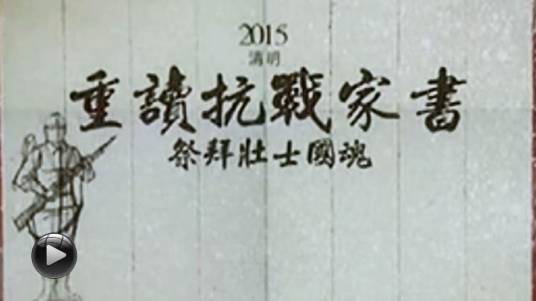 2015
清明
重讀抗戰家書
祭拜壯士國魂